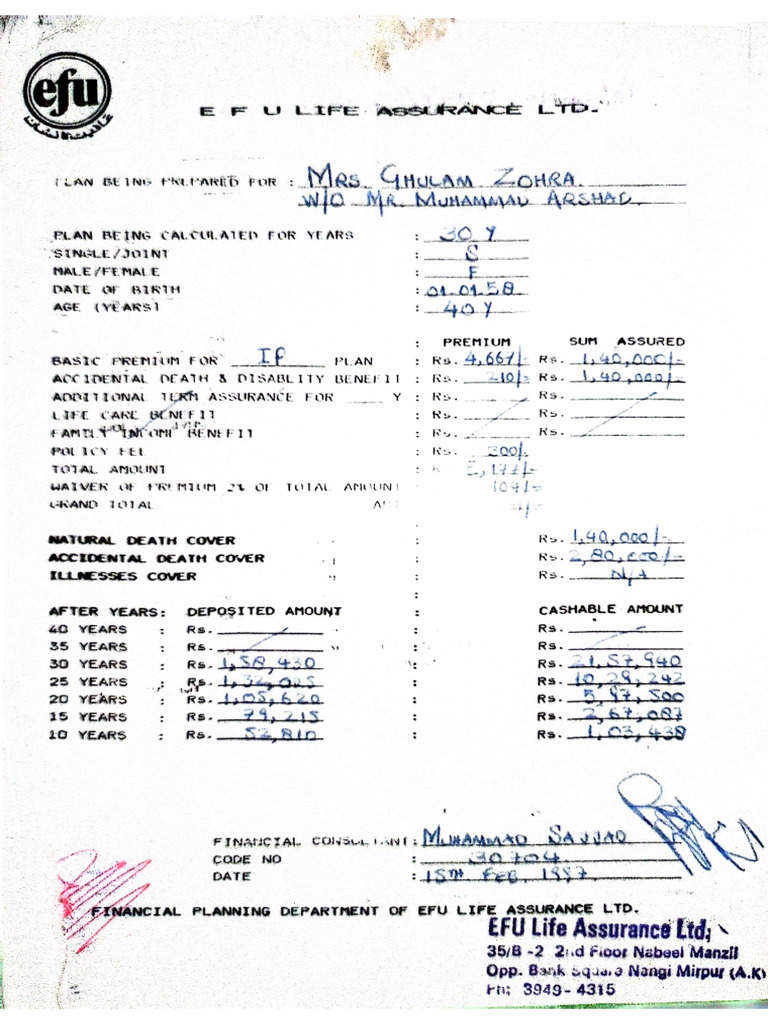 efu
E F U LIFE ASSURANCE LTD.
PLAN BEING PREPARED FOR : MRS. GHULAM ZOHRA.
W/O MR. MUHAMMAD ARSHAD.
PLAN BEING CALCULATED FOR YEARS : 30 Y
SINGLE/JOINT : S
MALE/FEMALE : F
DATE OF BIRTH : 01.01.58
AGE (YEARS) : 40 Y
: PREMIUM SUM ASSURED
BASIC PREMIUM FOR IP PLAN : Rs. 4,667/- Rs. 1,40,000/-
ACCIDENTAL DEATH & DISABLITY BENEFIT : Rs. 210/- Rs. 1,40,000/-
ADDITIONAL TERM ASSURANCE FOR ____ Y : Rs. Rs.
LIFE CARE BENEFIT : Rs. Rs.
FAMILY INCOME BENEFIT : Rs. Rs.
POLICY FEE : Rs. 300/-
TOTAL AMOUNT : R 5,177/-
WAIVER OF PREMIUM 2% OF TOTAL AMOUNT 104/-
GRAND TOTAL
NATURAL DEATH COVER : Rs. 1,40,000/-
ACCIDENTAL DEATH COVER : Rs. 2,80,000/-
ILLNESSES COVER : Rs. N/A
AFTER YEARS: DEPOSITED AMOUNT : CASHABLE AMOUNT
40 YEARS : Rs. : Rs.
35 YEARS : Rs. : Rs.
30 YEARS : Rs. 1,58,430 : Rs. 21,57,940
25 YEARS : Rs. 1,32,025 : Rs. 10,29,242
20 YEARS : Rs. 1,05,620 : Rs. 5,97,500
15 YEARS : Rs. 79,215 : Rs. 2,67,087
10 YEARS : Rs. 52,810 : Rs. 1,03,438
FINANCIAL CONSULTANT: MUHAMMAD SAJJAD
CODE NO : 30704
DATE : 15TH FEB. 1997
FINANCIAL PLANNING DEPARTMENT OF EFU LIFE ASSURANCE LTD.
EFU Life Assurance Ltd;
35/B -2 2nd Floor Nabeel Manzil
Opp. Bank Square Nangi Mirpur (A.K)
Ph: 3949- 4315